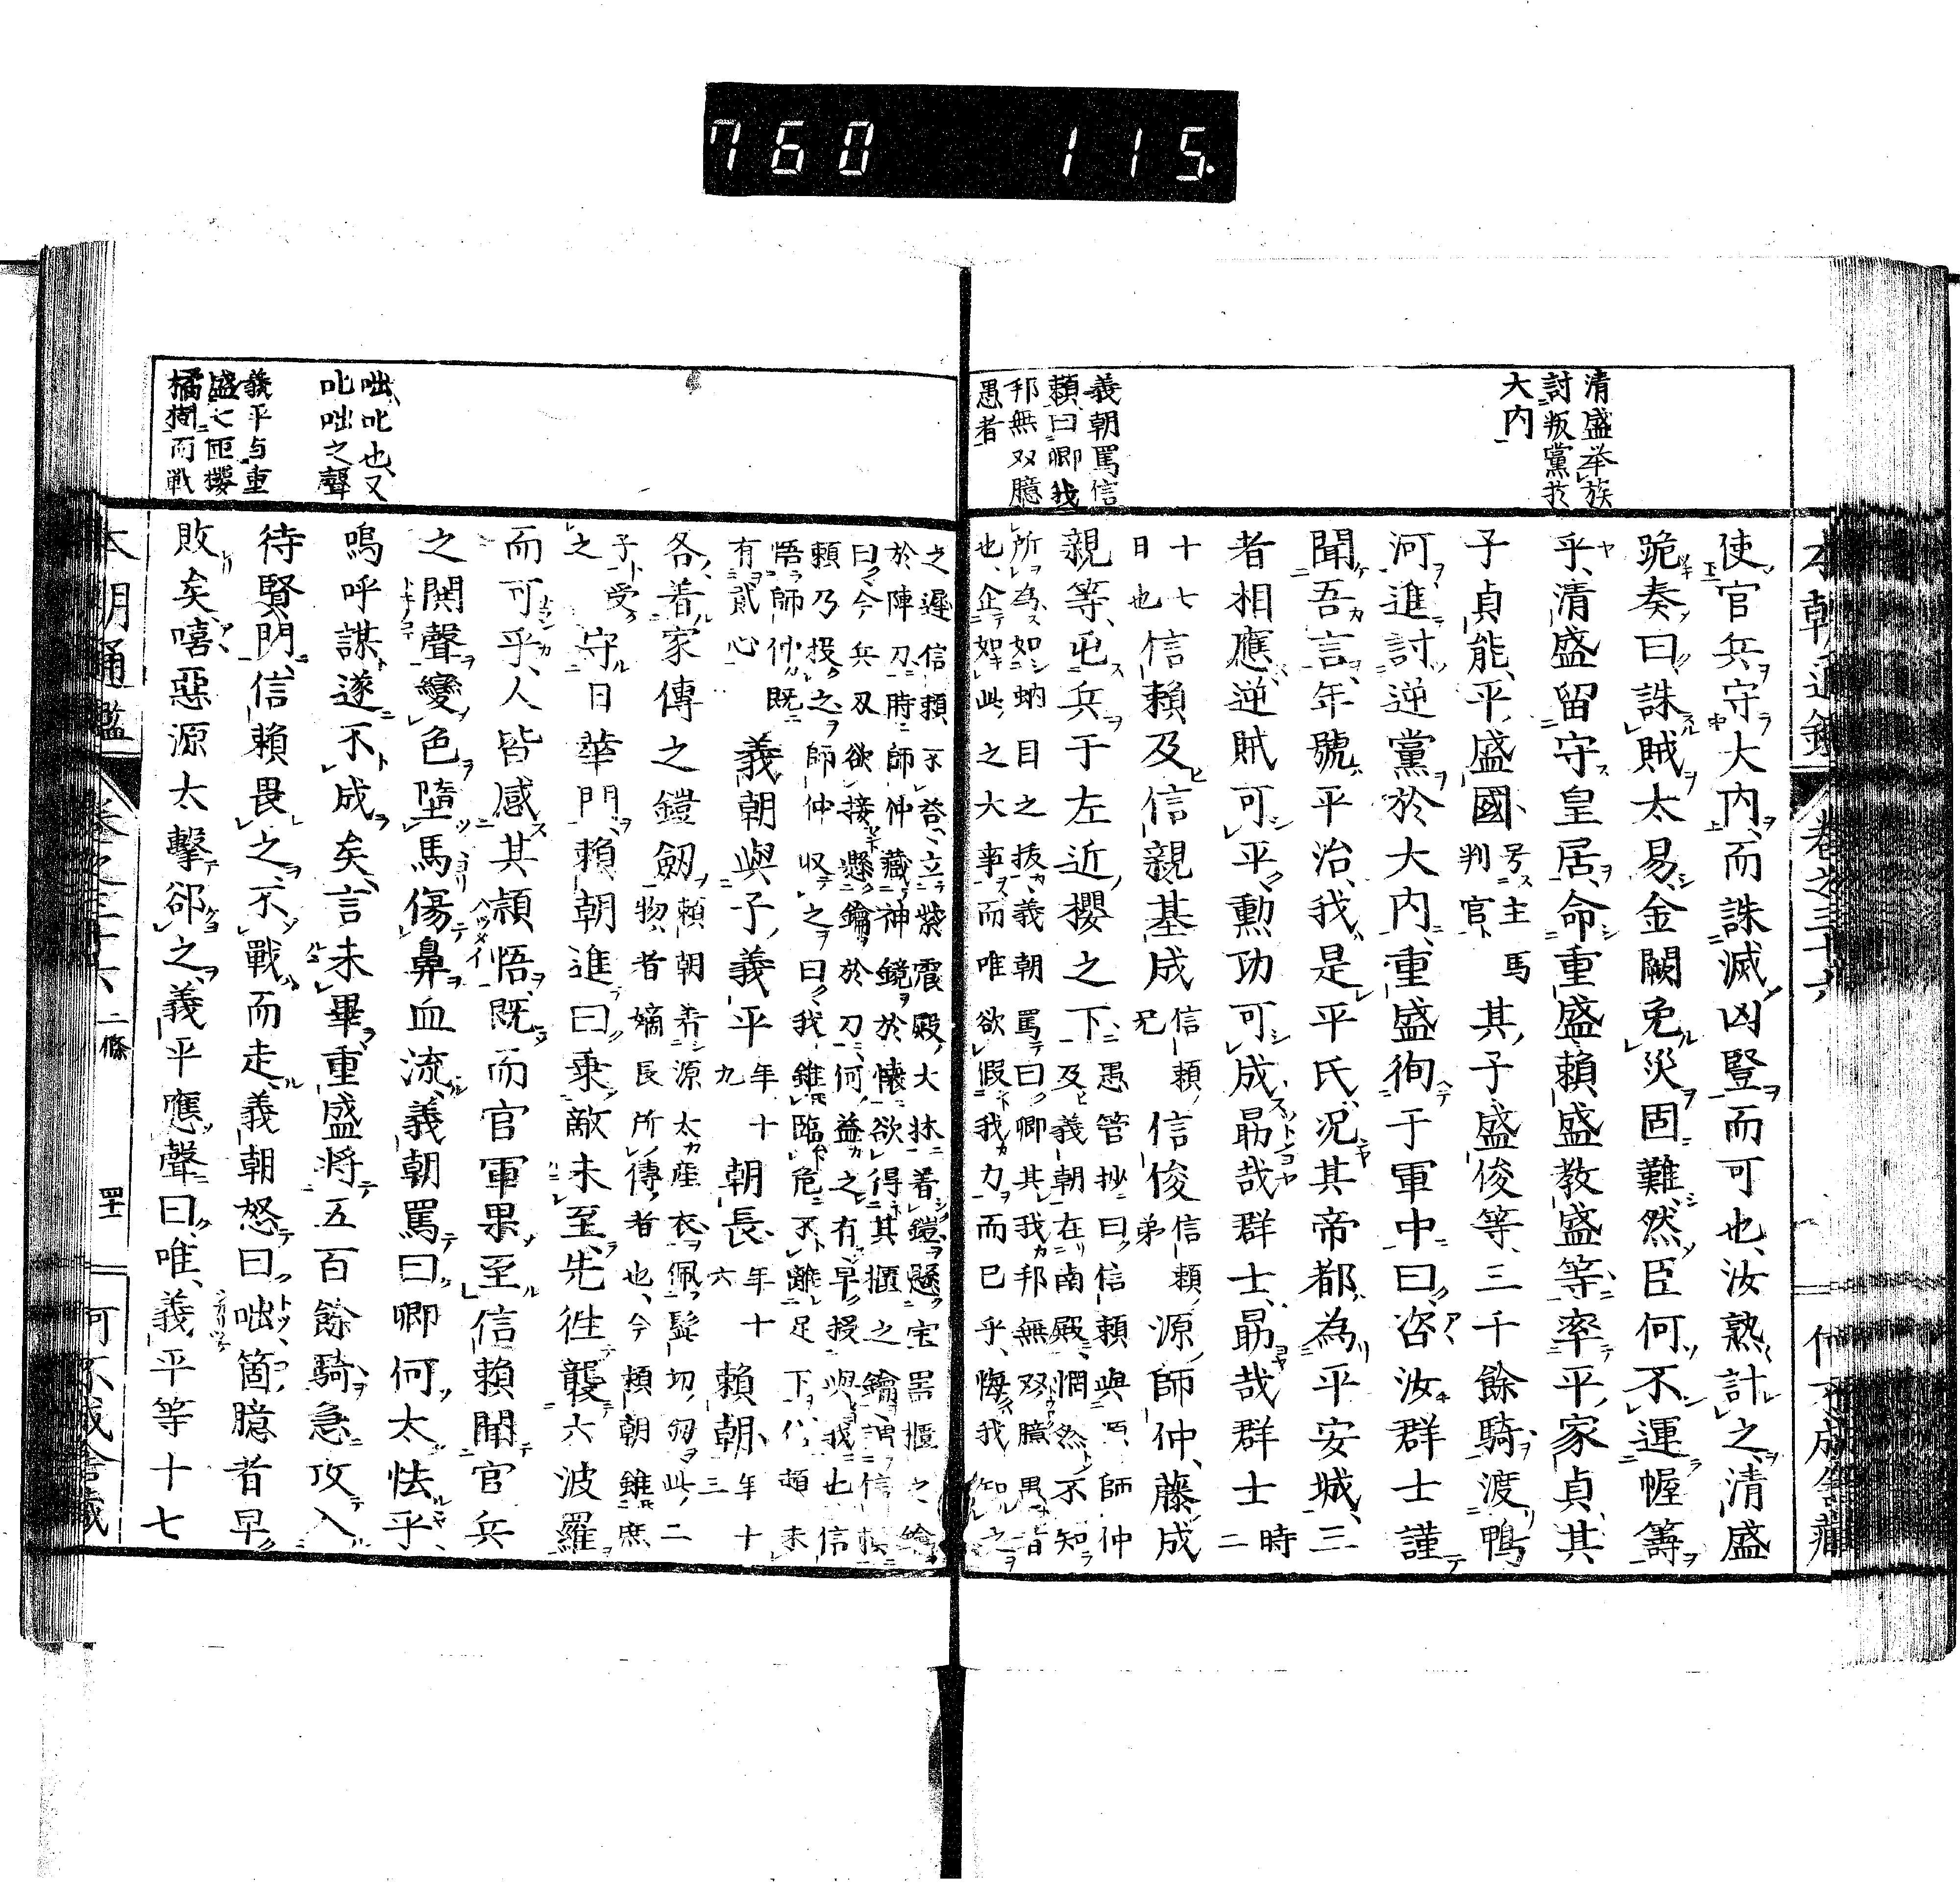 760 115.
清盛举族
討叛黨於
大内
義朝罵信
頼曰卿我
邦無双臆
愚者
使官兵守大内、而誅滅凶豎而可也、汝熟計之、清盛
跪奏曰、誅賊太易、金闕免災固難、然臣何不運幄籌
乎、清盛留守皇居、命重盛、頼盛、教盛等、率平家貞、其
子貞能、平盛國、号主馬判官其子盛俊等、三千餘騎、渡鴨
河、進討逆黨於大内、重盛徇于軍中曰、咨汝群士謹
聞吾言、年號平治、我是平氏、況其帝都為平安城、三
者相應、逆賊可平、勲功可成、勗哉群士、勗哉群士時二
十七日也信頼、及信親、基成信頼兄信俊信頼弟源師仲、藤成
親等、屯兵于左近櫻之下、愚管抄曰、信頼與師仲
及義朝在南殿、惘然不知
所為、如蚋目之抜、義朝罵曰、卿其我邦無双臆愚者
也、企如此之大事、而唯欲假我力而已乎、悔我知之
之遲、信頼不荅、立紫宸殿大床、着鎧懸宝器櫃之
於陣刀、時師仲藏神鏡於懐、欲得其櫃之鑰、謂信頼
曰、今兵刃欲接、懸鑰於刀、何益之有、早授與我也、信
頼乃投之、師仲収之曰、我雖臨危不離足下、頼未
悟師仲既有貳心
義朝與子、義平年十九朝長、年十六頼朝、年十三
各着家傳之鎧劔、頼朝着源太産衣、佩髭切、此二
物者嫡長所傳者也、今頼朝雖庶子受之
守日華門、頼朝進曰、乗敵未至、先徃襲六波羅
而可乎、人皆感其頴悟、既而官軍果至、信頼聞官兵
之鬨聲變色、墮馬傷鼻血流、義朝罵曰、卿何太怯乎、
嗚呼謀遂不成矣、言未畢、重盛将五百餘騎、急攻入
待賢門、信頼畏之、不戰而走、義朝怒曰、咄箇臆者早
敗矣、嘻惡源太撃郤之、義平應聲曰、唯、義平等十七
咄叱也、又
叱咄之聲
義平与重
盛七匝櫻
橘間而戦
本朝通鑑 卷之三十六 二條 四十二